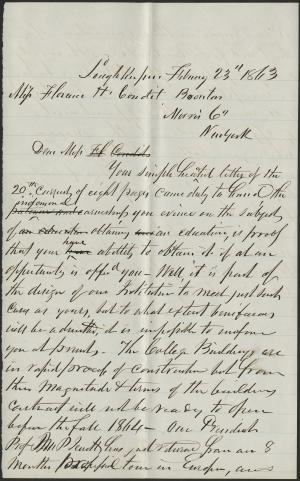 Poughkeepsie February 23rd 1863
Miss Florence H. Condit Boonton
Morris Co
New York
Dear Miss F H Condit
Your simple hearted letter of the
20th of eight pages came duly to hand. The
earnestness you evince on the subject
of an education obtaining an education is proof
that you have ability to obtain it if an
opportunity is offerd you - Well it is part of
the design of our Institution to meet just such
cases as yours, but to what extent beneficiaries
will be admitted, it is impossible to inform
you at present. - The College Buildings are
in rapid process of construction but from
their magnitude & terms of the builders
contract will not be ready to open
before the Fall 1864 - Our President
Prof M P Jewett has just returned from an 8
months tour in Europe, and